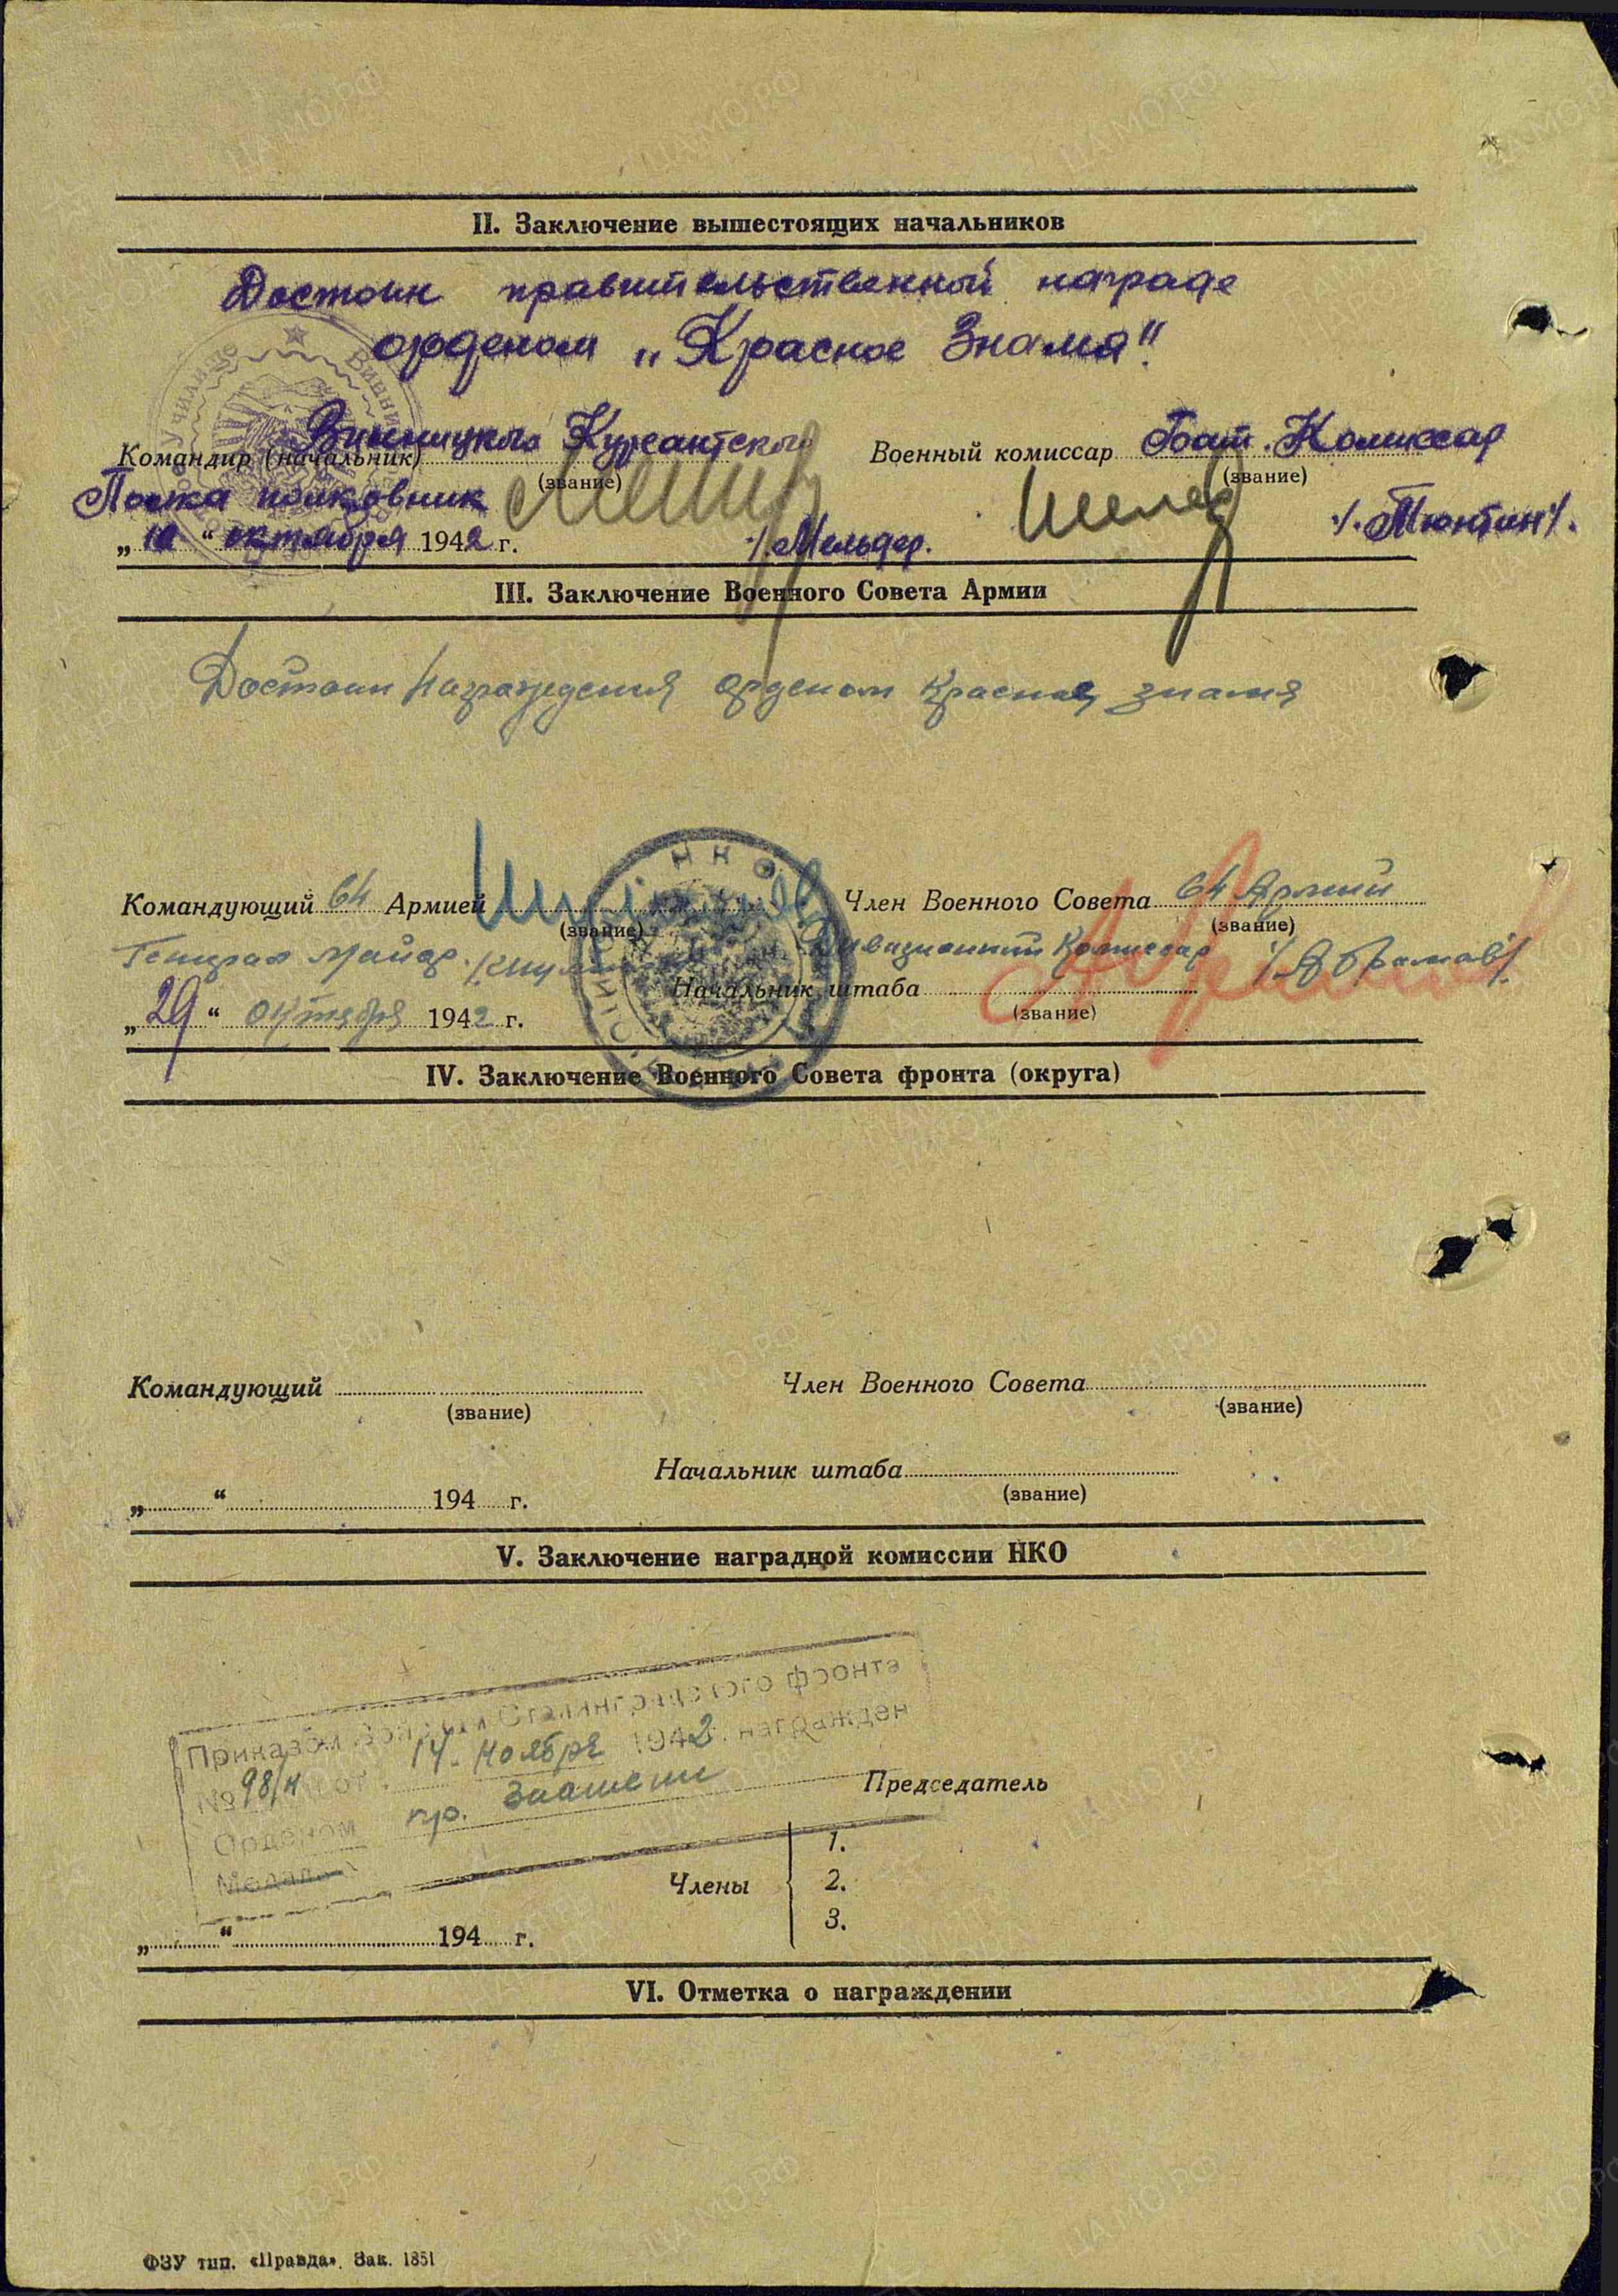 II. Заключение вышестоящих начальников
Достоин правительственной награде
орденом „Красное Знамя".
Командир (начальник) Винницкого Курсантского
Военный комиссар Бат. Комиссар
(звание)
(звание)
Полка полковник
/.Мельдер.
/.Тюнтин/.
„10" октября 1942 г.
III. Заключение Военного Совета Армии
Достоин награждения орденом красное знамя
Командующий 64 Армией
Член Военного Совета 64 Армии
(звание)
(звание)
Генерал майор
Дивизионный Комиссар /Абрамов/.
Начальник штаба
(звание)
„29" октября 1942 г.
IV. Заключение Военного Совета фронта (округа)
Командующий
Член Военного Совета
(звание)
(звание)
Начальник штаба
(звание)
„ " 194 г.
V. Заключение наградной комиссии НКО
Приказом войскам Сталинградского фронта
№ 98/н от 14. ноября 1942 г. награжден
Орденом кр. Знамени
Медаль
Председатель
Члены
1.
2.
3.
„ " 194 г.
VI. Отметка о награждении
ФЗУ тип. «Правда». Зак. 1851